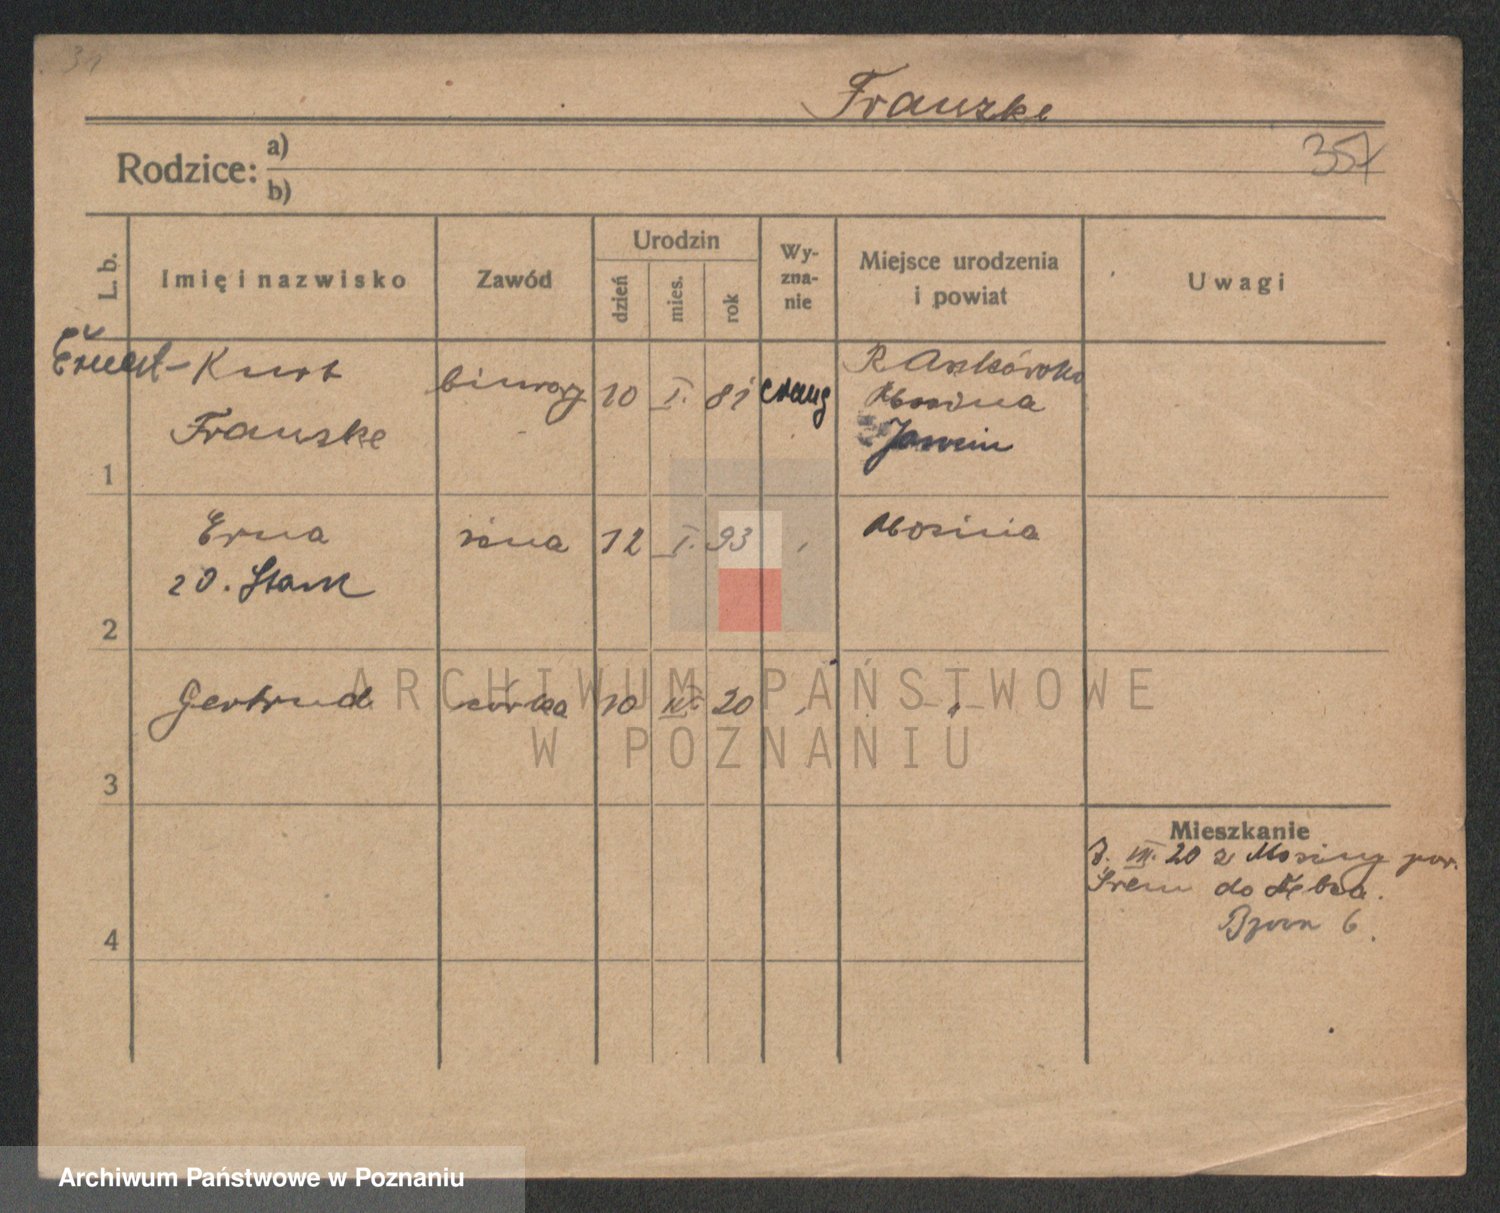 31
Franzke
Rodzice:
a)
b)
357
L. b.
Imię i nazwisko
Zawód
Urodzin
dzień
mies.
rok
Wy-
zna-
nie
Miejsce urodzenia
i powiat
Uwagi
Ernest - Kurt
Franzke
biurowy
10
I.
81
ewang
Jarocin
1
Erna
zd. Stark
żona
12
I.
93
Mosina
2
Gertrud
córka
10
20
3
Mieszkanie
III. 20 z Mosiny pow.
Śrem do Dębca.
6.
4
ARCHIWUM PAŃSTWOWE
W POZNANIU
Archiwum Państwowe w Poznaniu